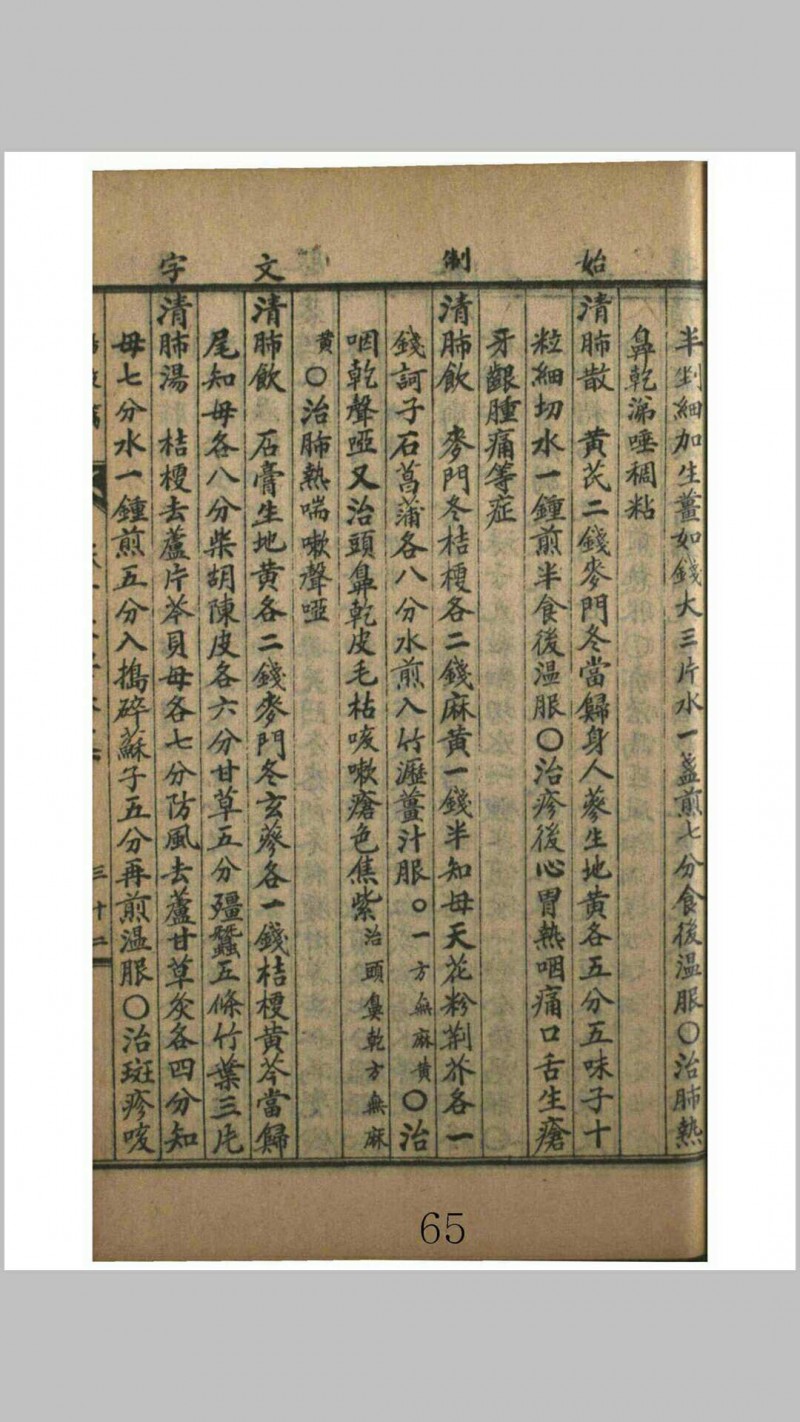 始制文字
半剉細加生薑如錢大三片水一盞煎七分食後温服〇治肺熱
鼻乾涕唾稠粘
清肺散 黄芪二錢麥門冬當歸身人蔘生地黄各五分五味子十
粒細切水一鍾煎半食後温服〇治疹後心胃熱咽痛口舌生瘡
牙齦腫痛等症
清肺飲 麥門冬桔梗各二錢麻黄一錢半知母天花粉荆芥各一
錢訶子石菖蒲各八分水煎入竹瀝薑汁服〇一方無麻黄〇治
咽乾聲啞又治頭鼻乾皮毛枯咳嗽瘡色焦紫治頭鼻乾方無麻
黄〇治肺熱喘嗽聲啞
清肺飲 石膏生地黄各二錢麥門冬玄蔘各一錢桔梗黄芩當歸
尾知母各八分柴胡陳皮各六分甘草五分殭蠶五條竹葉三片
清肺湯 桔梗去蘆片芩貝母各七分防風去蘆甘草炙各四分知
母七分水一鍾煎五分入搗碎蘇子五分再煎温服〇治斑疹咳
三十二
65